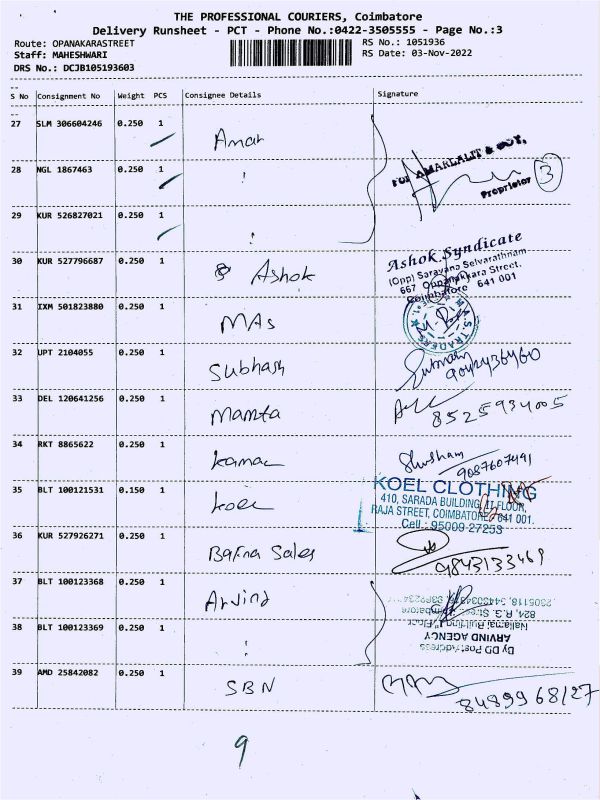 THE PROFESSIONAL COURIERS, Coimbatore
Delivery Runsheet - PCT - Phone No.:0422-3505555 - Page No.:3
Route: OPANAKARASTREET
Staff: MAHESHWARI
DRS No.: DCJB105193603
RS No.: 1051936
RS Date: 03-Nov-2022
S No Consignment No Weight PCS Consignee Details Signature
27 SLM 306604246 0.250 1 Amar
28 NGL 1867463 0.250 1 "
29 KUR 526827021 0.250 1 "
For AMARLALIT & COY,
Proprietor
3
30 KUR 527796687 0.250 1 Ashok
Ashok Syndicate
(Opp) Saravana Selvarathnam
667 Oppanakkara Street,
Coimbatore 641 001
31 IXM 501823880 0.250 1 MAs
M.A.S. TRADERS
32 UPT 2104055 0.250 1 Subhash
33 DEL 120641256 0.250 1 Mamta 8525934005
34 RKT 8865622 0.250 1 Kamal Shusham
9087607491
35 BLT 100121531 0.150 1 Koel
KOEL CLOTHING
410, SARADA BUILDING, II FLOOR,
RAJA STREET, COIMBATORE, 641 001.
Cell : 95009 27253
36 KUR 527926271 0.250 1 Bafna Sales 9843133469
37 BLT 100123368 0.250 1 Arvind
38 BLT 100123369 0.250 1 "
824, R.G. Street, Coimbatore
Nallamai Building I Floor
ARVIND AGENCY
39 AMD 25842082 0.250 1 SBN 8489968127
9